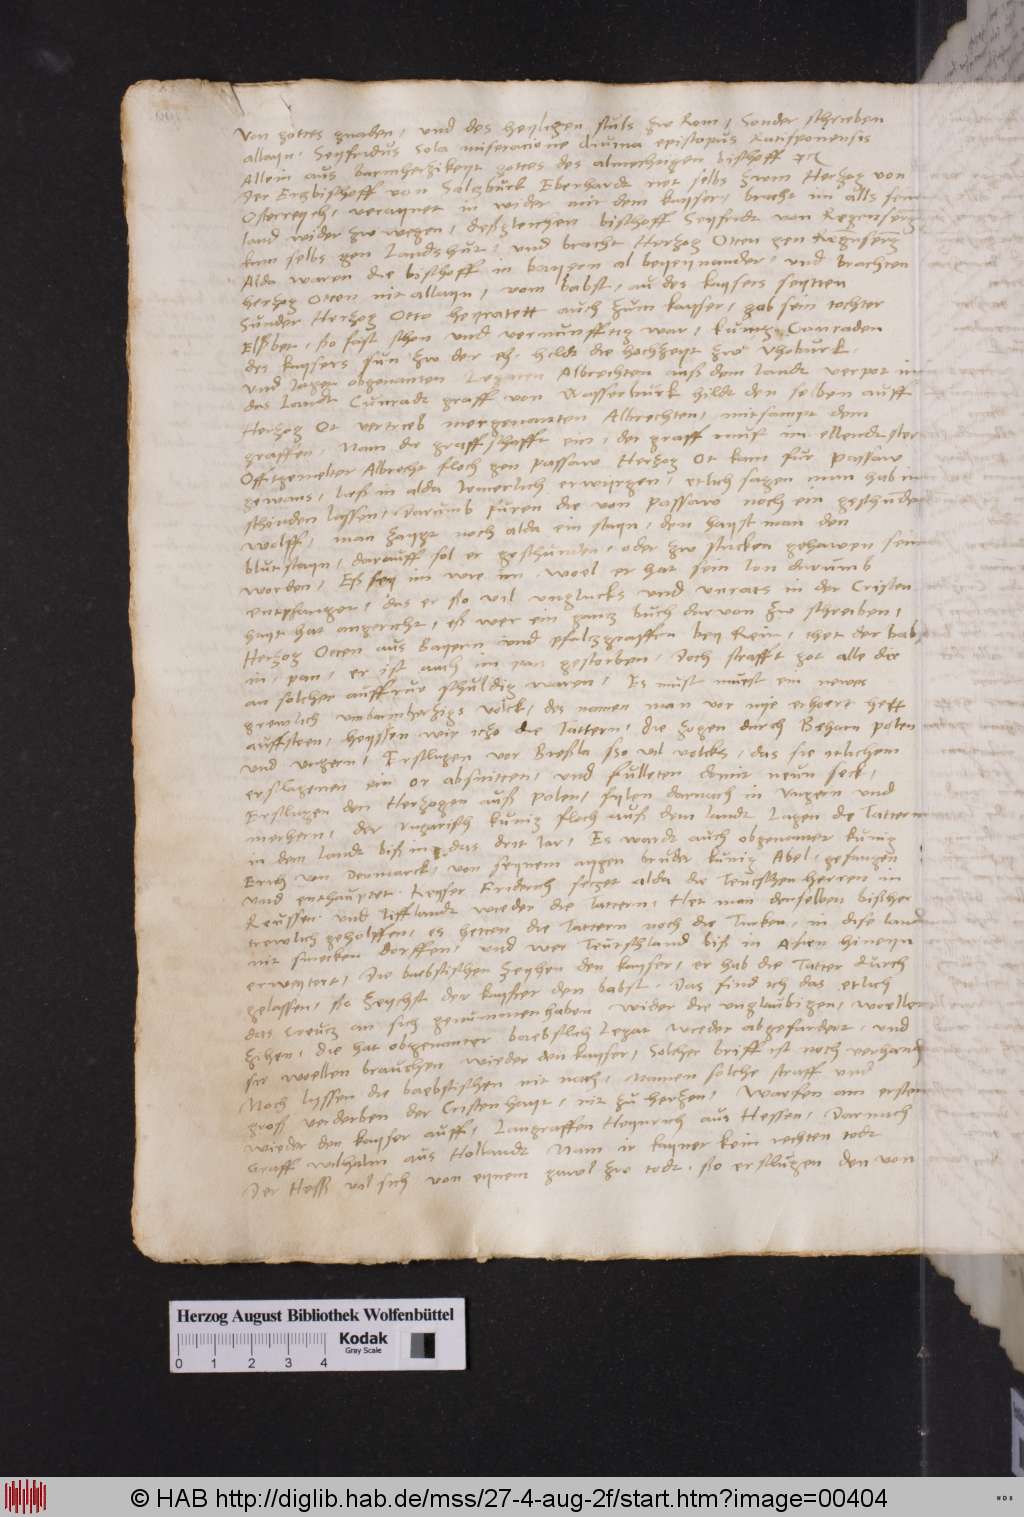 Von gottes gnaden, und des heyligen stuls zw Rom, Sonder schrieben
allayn. Seyfridus Sola miseracione diuina episcopus Ratisponensis
Allein aus barmherzikeyt gottes des almechtigen bischoff
Der Erzbischoff von Salzburck Eberhardt riet selbs zwm Herzog von
Osterreych, veraynet in wider mit dem kayser, bracht im alls sein
land wider zw wegen, desgleichen bischoff Seyfridt von Regenspurg
kam selbs gen Landshut, und bracht Herzog Otten gen Regenspurg
Alda waren die bischoff in bayern al beyeynander, und brachten
herzog Otten nit allayn, vom babst, au des kaysers seytten
Sunder Herzog Otto heyratett auch zum kayser, gab sein tochter
Elsbet, so fast schon und vernunfftig war, kunig Conraden
des kaysers sun zw der eh. hildt die hochzeyt zw Vhoburk.
und Jagen obgenanten Legaten Albrechten auss dem landt verpot im
das Landt Cunradt graff von Wasserburck hildt den selben auff
Herzog Ot vertrieb mergenanten Albrechten, mitsampt dem
graffen, Nam die graffschafft ein, der graff must im ellendt ster
Offtgemelter Albrecht floch gen passaw Herzog Ot kam fur passaw
gewans, ließ in alda Jemerlich erwurgen, etlich sagen man hab in
schinden lassen, darumb furen die von passaw noch ein geschunden
wolff, man zaygt noch alda ein stayn, den hayst man den
blutstayn, darauff sol er geschunden, oder zw stucken gehawen sein
worden, Es sey im wie im woel er hat sein lon darumb
entpfangen, das er so vil unglucks und unrats in der Cristen
hayt hat angericht, es wer ein gantz buch darvon zw schreiben,
Herzog Otten aus Bayern und pfalczgraffen bey Rein, thet der babst
in, pan, er ist auch im pan gestorben, Doch strafft got alle die
an solcher auffrur schuldig waren, Es must ein newes
grewlich unbarmherzigs volck, des namen man vor nye erhoert hett
aufsteen, heyssen wir itzo die Tattern, die zogen durch Beham polen
und ungern, Erslugen vor Bresla so vil volcks, das sie itlichem
erslagenen ein or absnitten, und fulleten domit neun seck,
Erslugen den Herzogen auss polen, fylen darnach in Ungern und
merhern, der Ungarisch kunig floch auss dem landt Lagen die Tattern
in dem landt biß in das drit Jar, Es wardt auch obgenanter kunig
Erich von Denmarck, von seynem aygen bruder kunig Abel, gefangen
und enthauptet. Keyser Friderich setzet alda die Teutschen herren in
Reussen und Liffland wieder die Tattern, Het man denselben bischer
trewlich geholffen, es hetten die Tattern noch die Turken, in dise land
nit smecken dorffen, und wer Teutschland biß in Asien hineyn
erweytert, Die baebstischen zeyhen den kayser, er hab die Tatter durch
gelassen, so zeychst der kayser den babst. Das find ich das etlich
das creutz an sich genummen haben wider die unglaubigen, woellen
zihen, die hat obgenanter baebstlich Legat wieder abgefordert, und
sie woellen brauchen wieder den kayser, Solcher briff ist noch verhand
Noch lyssen die baebstischen nit nach, Namen solche straff und
gross verderben der Cristenhayt, nit zu herzen, Warfen am ersten
wieder den kayser auff, Langraffen Heynrich aus Hessen, Darnach
Graff wilhalm aus Hollandt Nam ir kayner kein rechten todt
Der Hess vil sich von eynem gawl zw todt. so erslugen den von
Herzog August Bibliothek Wolfenbüttel
Kodak
Gray Scale
0 1 2 3 4
© HAB http://diglib.hab.de/mss/27-4-aug-2f/start.htm?image=00404